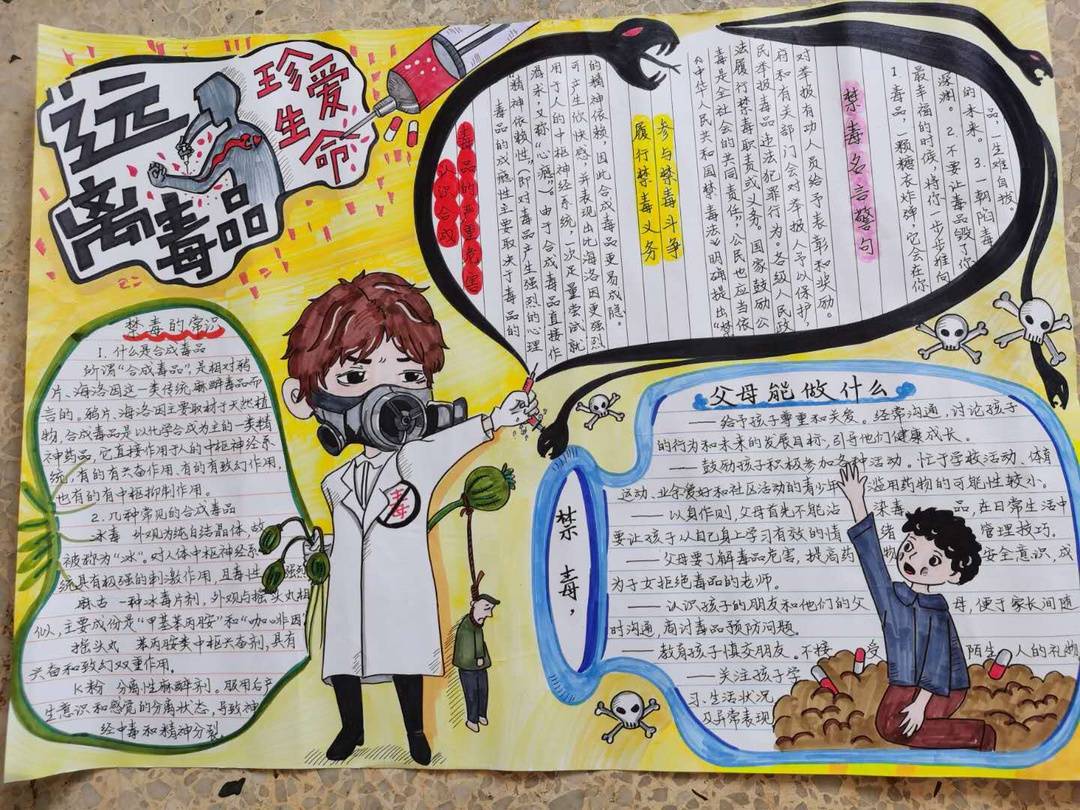 远
离毒品
珍爱
生命
毒品的严重危害
认识合成
毒品的成瘾性主要取决于毒品的
"精神依赖性"(即对毒品产生强烈的心理
渴求,又称"心瘾")。由于合成毒品直接作
用于人的中枢神经系统,一次足量尝试就
可产生欣快感,并表现出比海洛因更强烈
的精神依赖,因此合成毒品更易成瘾。
参与禁毒斗争
履行禁毒义务
《中华人民共和国禁毒法》明确提出"禁
毒是全社会的共同责任",公民也应当依
法履行禁毒职责或义务。国家鼓励公
民举报毒品违法犯罪行为。各级人民政
府和有关部门会对举报人予以保护,
对举报有功人员给予表彰和奖励。
禁毒名言警句
1、毒品,一颗糖衣炸弹,它会在你
最幸福的时候,将你一步步推向
深渊。2.不要让毒品毁了你
的未来。3.一朝陷毒
品,一生难自拔。
禁毒的常识
1.什么是合成毒品
所谓"合成毒品",是相对鸦
片、海洛因这一类传统麻醉毒品而
言的。鸦片、海洛因主要取材于天然植
物,合成毒品是以化学合成为主的一类精
神药品,它直接作用于人的中枢神经系
统,有的有兴奋作用,有的有致幻作用,
也有的有中枢抑制作用。
2.几种常见的合成毒品
冰毒 外观为纯白结晶体,故
被称为"冰"。对人体中枢神经系
统具有极强的刺激作用,且毒性强烈
麻古 一种冰毒片剂,外观与摇头丸相
似,主要成份是"甲基苯丙胺"和"咖啡因"
摇头丸 苯丙胺类中枢兴奋剂,具有
兴奋和致幻双重作用。
K粉 分离性麻醉剂。服用后产
生意识和感觉的分离状态,导致神
经中毒和精神分裂
毒
禁毒,
父母能做什么
——给予孩子尊重和关爱。经常沟通,讨论孩子
的行为和未来的发展目标,引导他们健康成长。
——鼓励孩子积极参加各种活动。忙于学校活动、体育
运动、业余爱好和社区活动的青少年滥用药物的可能性较小。
——以身作则,父母首先不能沾染毒品,在日常生活中
要让孩子从自己身上学习有效的情绪管理技巧。
——父母要了解毒品危害,提高药物安全意识,成
为子女拒绝毒品的老师。
——认识孩子的朋友和他们的父母,便于家长间随
时沟通,商讨毒品预防问题。
——教育孩子慎交朋友。不接受陌生人的礼物
——关注孩子学
习、生活状况
及异常表现